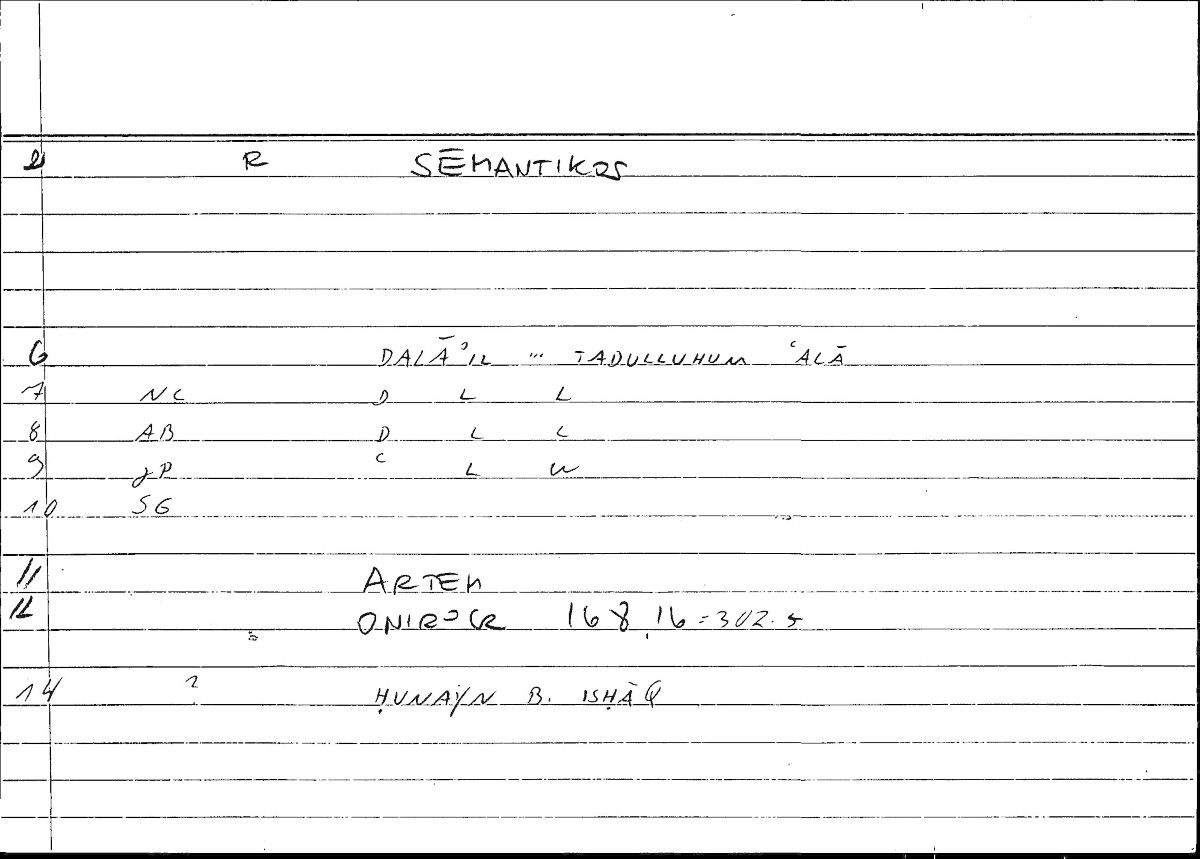 2 R SĒMANTIKOS
6 DALĀʾIL ... TADULLUHUM ʿALĀ
7 NC D L L
8 AB D L L
9 JP C L W
10 SG
11 ARTEM
12 ONIROCR 168,16 = 302.5
14 ? ḤUNAYN B. ISḤĀQ